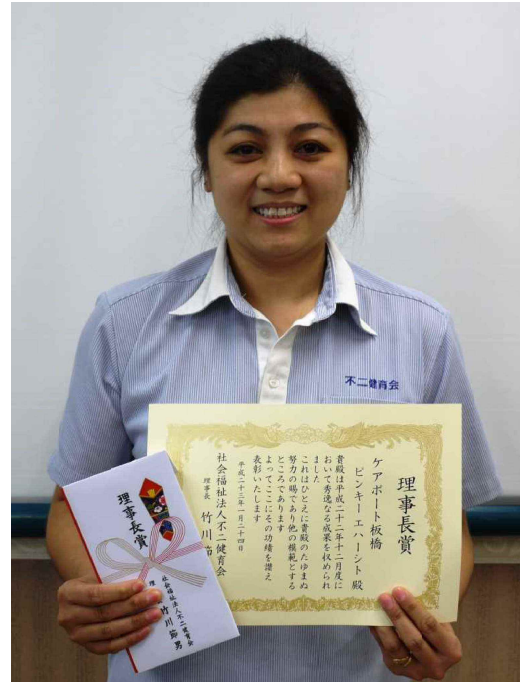 不二健育会
理事長賞
ケアポート板橋
ピンキー エハーシト 殿
貴殿は平成二十二年十二月度に
おいて秀逸なる成果を収められ
ました
これはひとえに貴殿のたゆまぬ
努力の賜であり他の模範とする
ところであります
よってここにその功績を讃え
表彰いたします
平成二十三年一月二十四日
社会福祉法人不二健育会
理事長 竹川節
理事長賞
社会福祉法人不二健育会
理
竹川節男